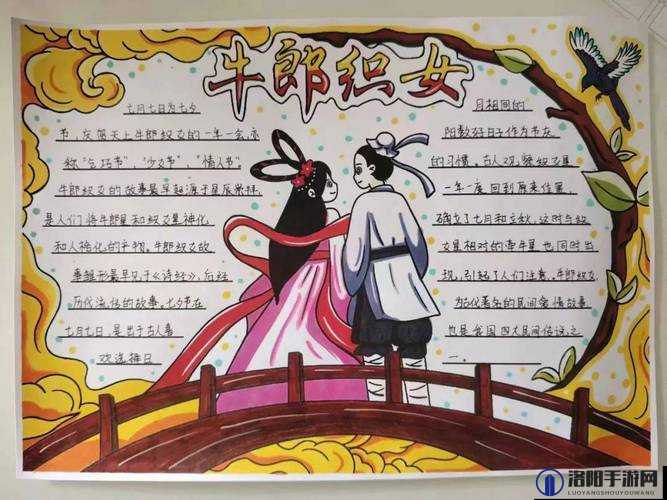 牛郎织女
七月七日为七夕
节，庆贺天上牛郎织女的一年一会，亦
称“乞巧节”“少女节”“情人节”
牛郎织女的故事最早起源于星辰崇拜，
是人们将牛郎星和织女星神化
和人格化的产物。牛郎织女故
事雏形最早见于《诗经》，后经
历代流传的故事。七夕节在
七月七日，是出于古人喜
欢选择日
月相同的
阳数好日子作为节庆
的习惯，古人观察织女星
一年一度回到原来位置，
确立了七月和立秋，这时与织
女星相对的牵牛星也同时出
现，引起了人们注意。牛郎织女
为古代著名的民间爱情故事，
也是我国四大民间传说之
一。
洛阳手游网
LUOYANGSHOUYOUWANG